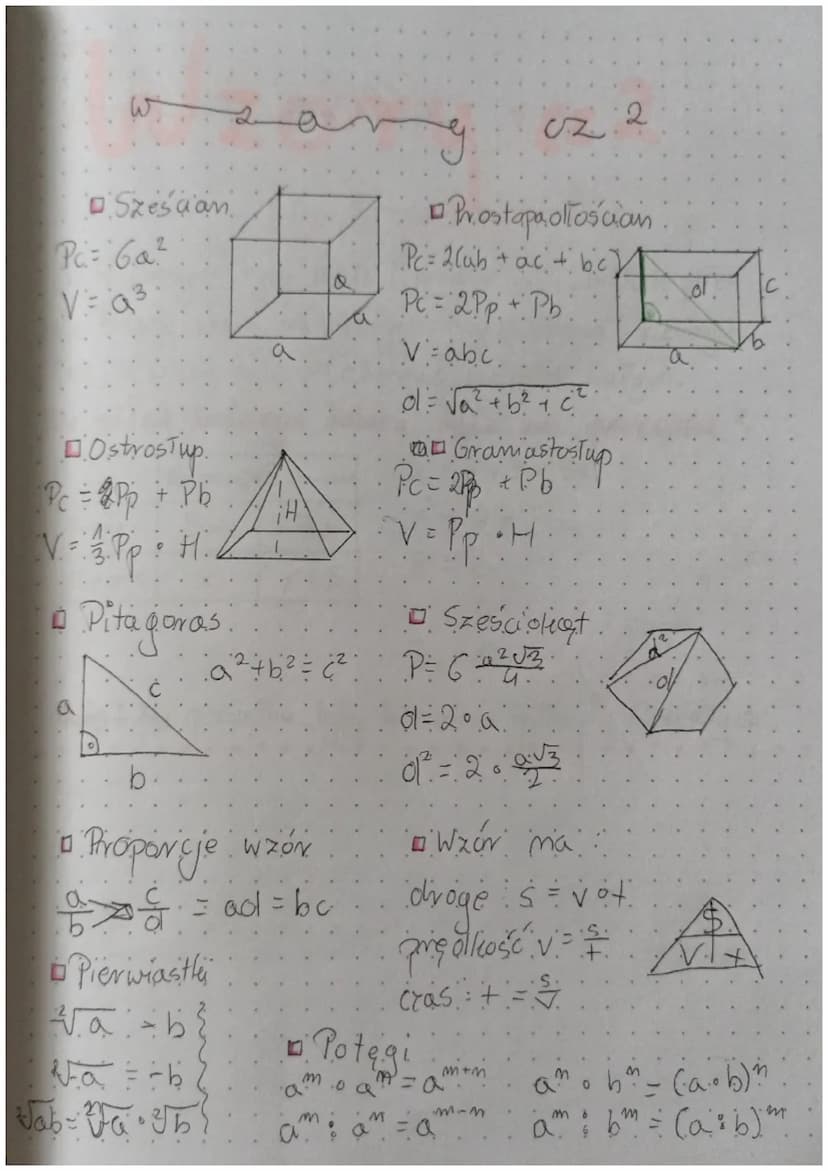 Wzory cz 2
Sześcian
Pc = 6a²
V = a³
a
a
a
Prostopadłościan
Pc = 2(ab + ac + bc)
Pc = 2Pp + Pb
V = abc
d = √a² + b² + c²
d
c
b
a
Ostrosłup
Pc = Pp + Pb
V = 1/3 Pp • H
H
Graniastosłup
Pc = 2Pp + Pb
V = Pp • H
Pitagoras
a² + b² = c²
a
c
b
Sześciokąt
P = 6 a²√3/4
d = 2 • a
d² = 2 • a√3/2
d²
d
Proporcje wzór
a/b > c/d = ad = bc
Wzór na :
drogę : s = v • t
prędkość v = s/t
czas : t = s/v
S
V t
Pierwiastki
²√a = b
√-a = -b
²√ab = ²√a • ²√b
Potęgi
aᵐ • aⁿ = aᵐ⁺ⁿ
aⁿ • bⁿ = (a • b)ⁿ
aᵐ : aⁿ = aᵐ⁻ⁿ
aᵐ : bᵐ = (a : b)ᵐ